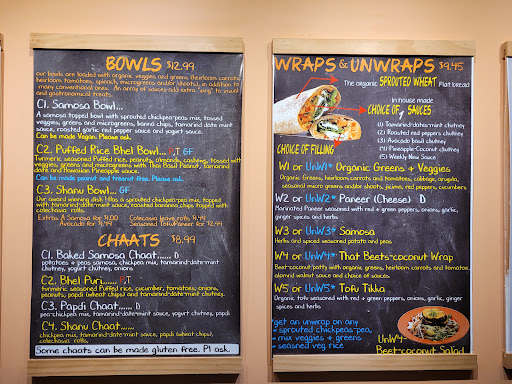 BOWLS $12.99
our bowls are loaded with organic veggies and greens (heirloom carrots,
heirloom tomatoes, spinach, microgreens and/or shoots), in addition to
many conventional ones. An array of sauces add extra "zing" to visual
and gastronomical treats.
C1. Samosa Bowl...
A samosa topped bowl with sprouted chickpea-peas mix, tossed
veggies, greens and microgreens, banana chips, tamarind date mint
sauce, roasted garlic red pepper sauce and yogurt sauce.
Can be made Vegan. Please ask.
C2. Puffed Rice Bhel Bowl... P,T GF
Turmeric seasoned Puffed rice, peanuts, almonds, cashews, tossed with
veggies, greens and microgreens with Thai Basil Peanut, Tamarind
date and Hawaiian Pineapple sauce.
Can be made peanut and treenut free. Please ask.
C3. Shanu Bowl... GF
Our award winning dish! Has a sprouted chickpea-pea mix, topped
with tamarind-date-mint sauce, roasted banana chips topped with
colechasia rolls.
Extras: 2 Samosa for 4.00 Colecasia leave rolls 4.49
Avocado for 4.49 Seasoned Tofu/Paneer for 2.99
CHAATS $8.99
C1. Baked Samosa Chaat...... D
potatoes + peas samosa, chickpea mix, tamarind-date-mint
chutney, yogurt chutney, onions
C2. Bhel Puri...... P,T
turmeric seasoned Puffed rice, cucumber, tomatoes, onions,
peanuts, papdi (wheat chips) and tamarind-date-mint chutney.
C3. Papdi Chaat...... D
pea-chickpea mix, tamarind-date-mint sauce, yogurt chutney, papdi
C4. Shanu Chaat......
chickpea mix, tamarind-date-mint sauce, papdi (wheat chips),
colechasia rolls.
Some chaats can be made gluten free. Pl ask.
WRAPS & UNWRAPS $9.45
The organic SPROUTED WHEAT Flat bread
In house made
CHOICE OF SAUCES
(1) Tamarind-date-mint chutney
(2) Roasted red peppers chutney
(3) Avocado basil chutney
(4) Pineapple-Coconut chutney
(5) Weekly New Sauce
CHOICE OF FILLING
W1 or UnW1* Organic Greens + Veggies
Organic Greens, heirloom carrots and tomatoes, cabbage, arugula,
seasonal micro greens and/or shoots, jicima, red peppers, cucumbers
W2 or UnW2* Paneer (Cheese) D
Marinated Paneer seasoned with red + green peppers, onions, garlic,
ginger spices and herbs
W3 or UnW3* Samosa
Herbs and spiced seasoned potato and peas
W4 or UnW4* That Beets-coconut Wrap
Beet-coconut patty with organic greens, heirloom carrots and tomatoe,
almond walnut sauce and choice of sauces.
W5 or UnW5* Tofu Tikka
Organic tofu seasoned with red + green peppers, onions, garlic, ginger
spices and herbs
*get an unwrap on any
= sprouted chickpeas-pea,
= mix veggies + greens
= seasned veg rice
UnW4-
Beet-coconut Salad